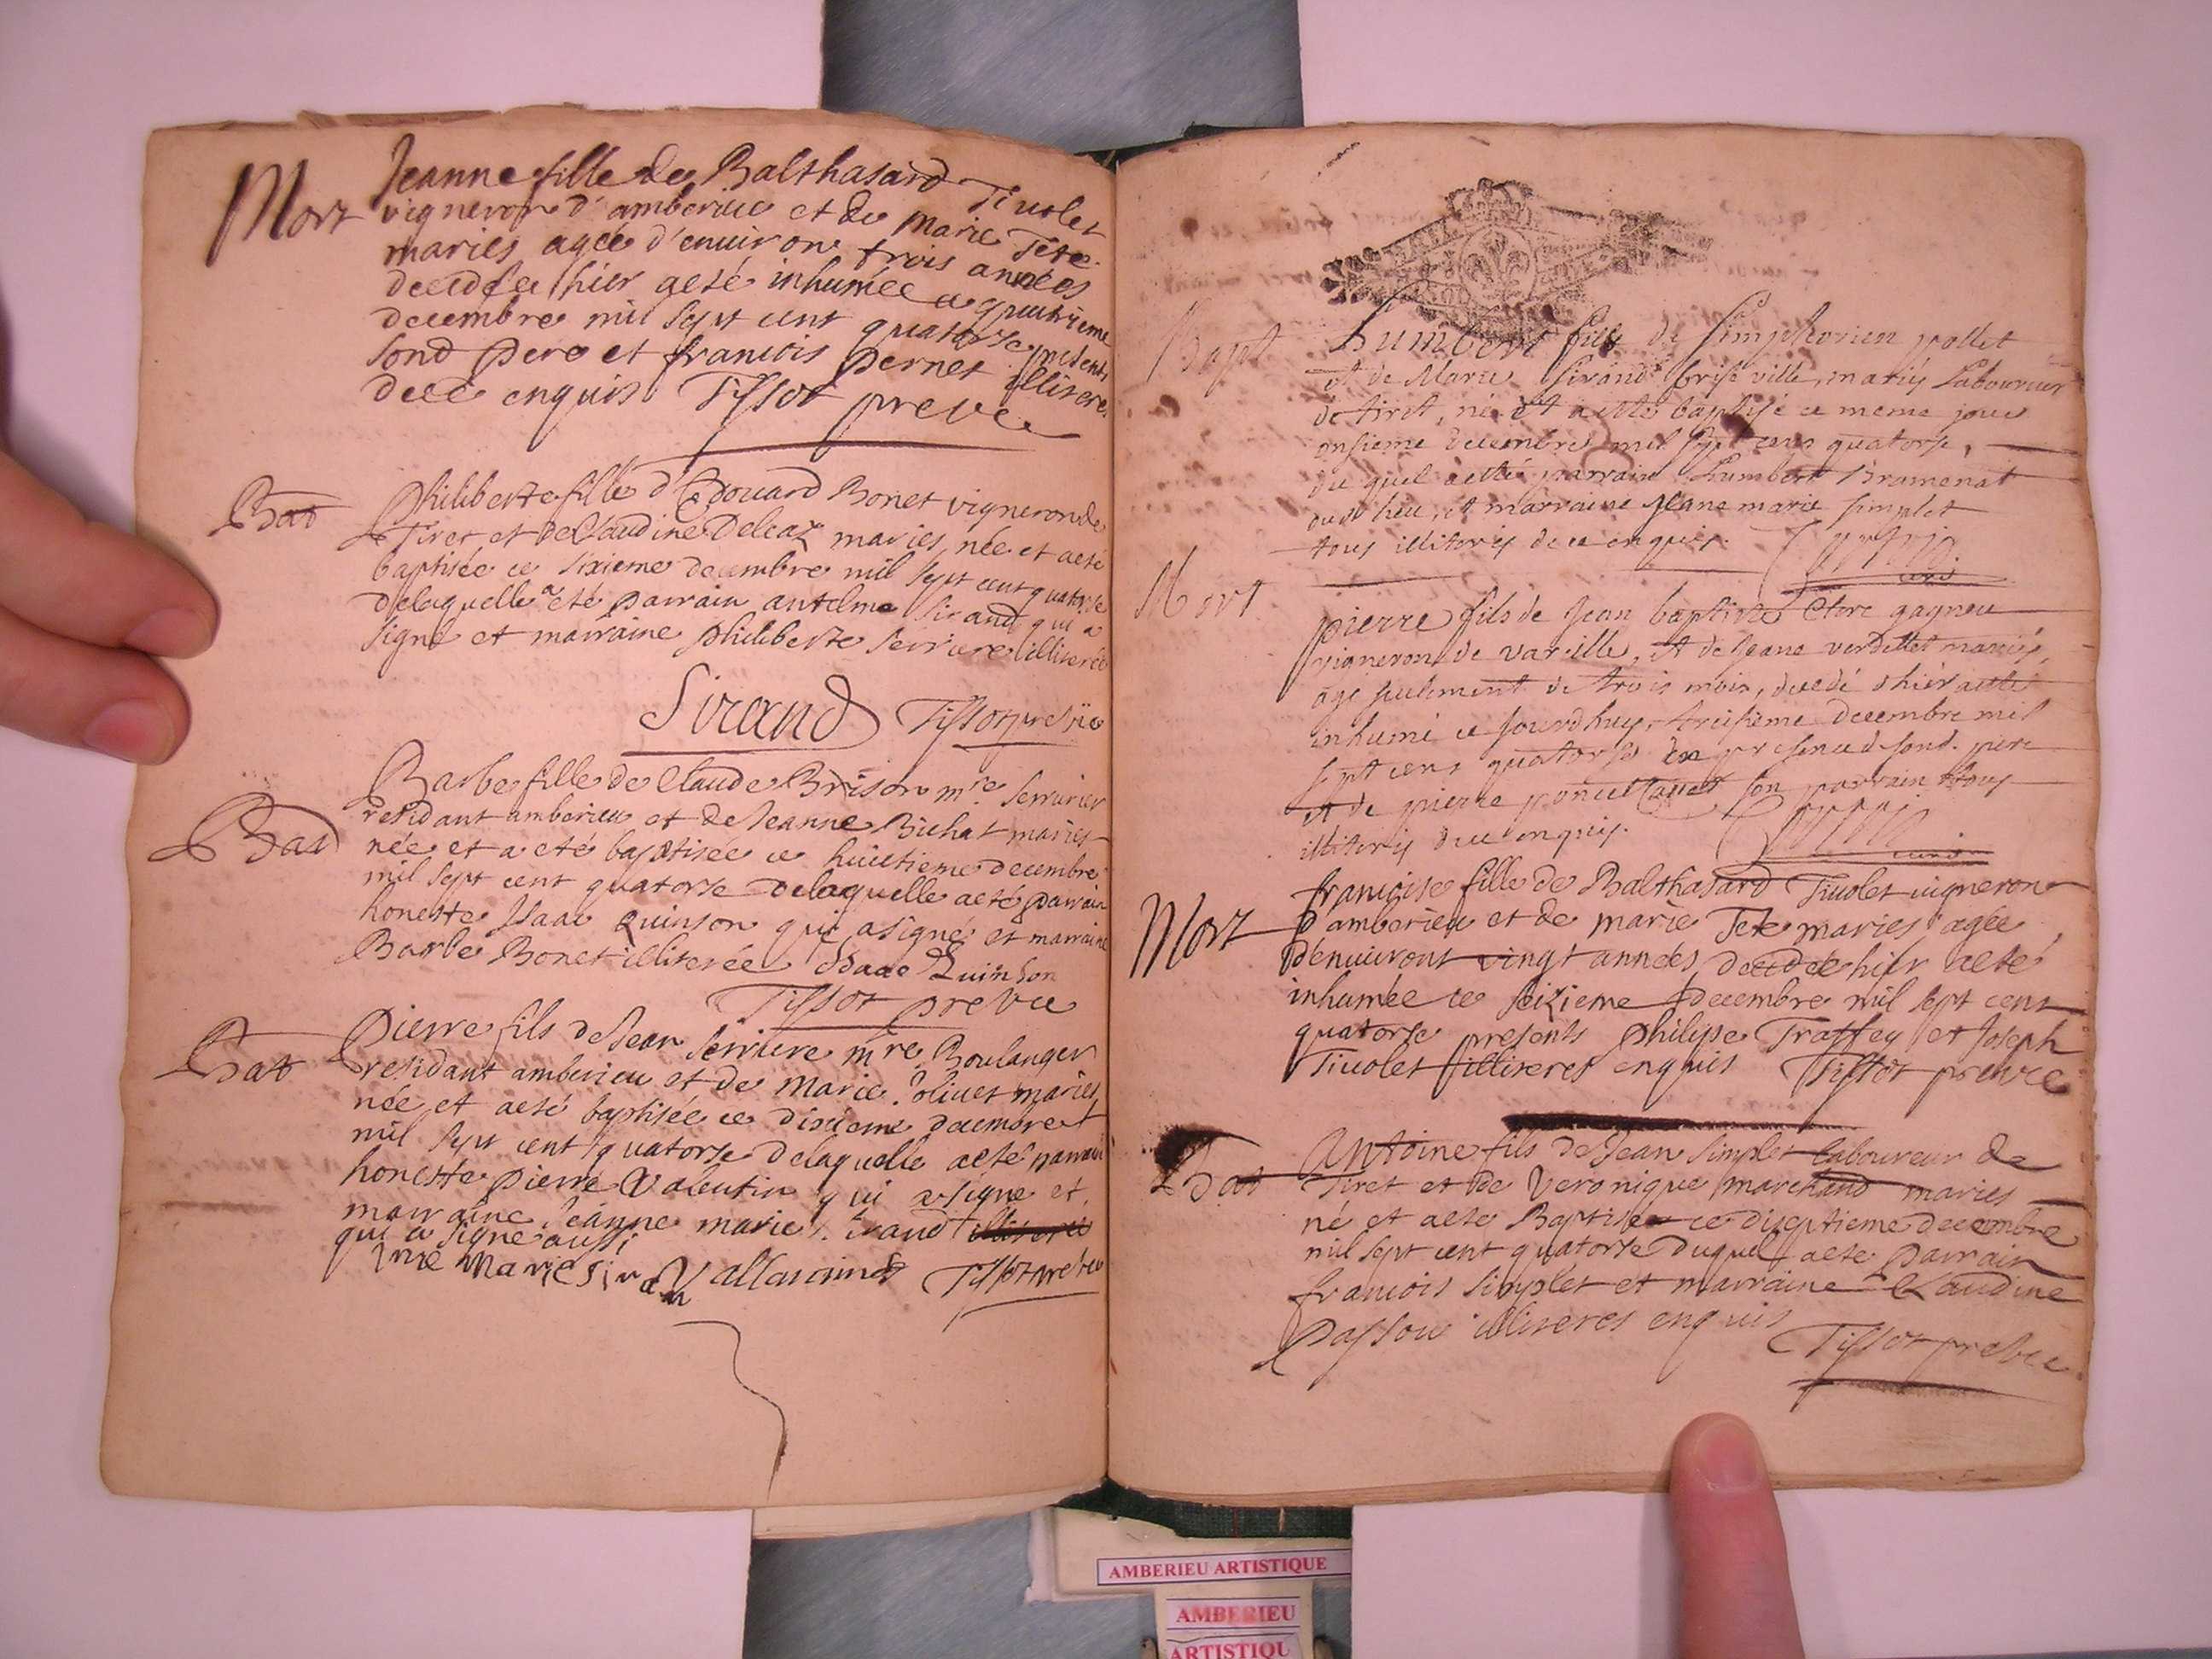 Mort
Jeanne fille de Balthasard Tiuolet
vigneron d'amberieu et de Marie Tete
maries agée d'enuiron trois années
decedée hier aeté inhumée ce quatrieme
decembre mil sept cent quatorse presents
sond pere et francois pernet illiteres
dece enquis Tissot prevre
Bat
Philiberte fille d'Edouard Bonet vigneron de
Tiret et de Claudine Deleaz maries, née et aeté
baptisée ce sixieme decembre mil sept cent quatorse
delaquelle a eté parrain antelme Sirand qui a
signé et marraine philiberte serriere illiterée
Sirand Tissot prevre
Bat
Barbe fille de Claude Brison mre. serrurier
residant amberieu et de Jeanne Bichat maries
née et a eté baptisée ce huictieme decembre
mil sept cent quatorse delaquelle aeté parrain
honeste Isaac quinson qui a signé et marraine
Barbe Bonet illiterée Isaac Quinson
Tissot prevre
Bat
Pierre fils de Jean serriere mre Boulanger
residant amberieu et de Marie Oliuet maries
née et aeté baptisée ce dixieme decembre
mil sept cent quatorse delaquelle aeté parrain
honeste pierre Valentin qui a signe et
marraine Jeanne marie Sirand
qui a signe aussi
marie Siran Tissot prevre
Bapt
humbert fils de Simphorien pollet
et de Marie Sirand brise ville, mariés Laboureur
de tiret, né et a esté baptisé ce meme jour
onsieme decembre mil sept cens quatorse,
du quel a esté parrain humbert Bramenat
dudt lieu, et marraine Jeane marie simplet
tous illiterés de ce enquis.
curé
Mort
pierre fils de Jean baptiste Clerc gagneu
vigneron de vareille, et de Jeane verdellet mariés,
agé seulement de trois mois, decedé d'hier a esté
inhumé ce jourdhuy, treisieme decembre mil
sept cens quatorse en presence de sond. pere
et de pierre poncet son parrain tous
illiterés de ce enquis.
curé
Mort
francoise fille de Balthasard Tiuolet uigneron
d'amberieu et de marie Tete maries agée
denuiront vingt années, decedée hier aeté
inhumée ce seizieme decembre mil sept cent
quatorse presents philippe Traffey et Joseph
Tiuolet illiteres enquis Tissot prevre
Bat
Antoine fils de Jean simplet laboureur de
Tiret et de Veronique marchand maries
né et aeté Baptisé ce diseptieme decembre
mil sept cent quatorse duquel aeté parrain
francois simplet et marraine Claudine
passou illiteres enquis
Tissot prevre
AMBERIEU ARTISTIQUE
AMBERIEU
ARTISTIQU